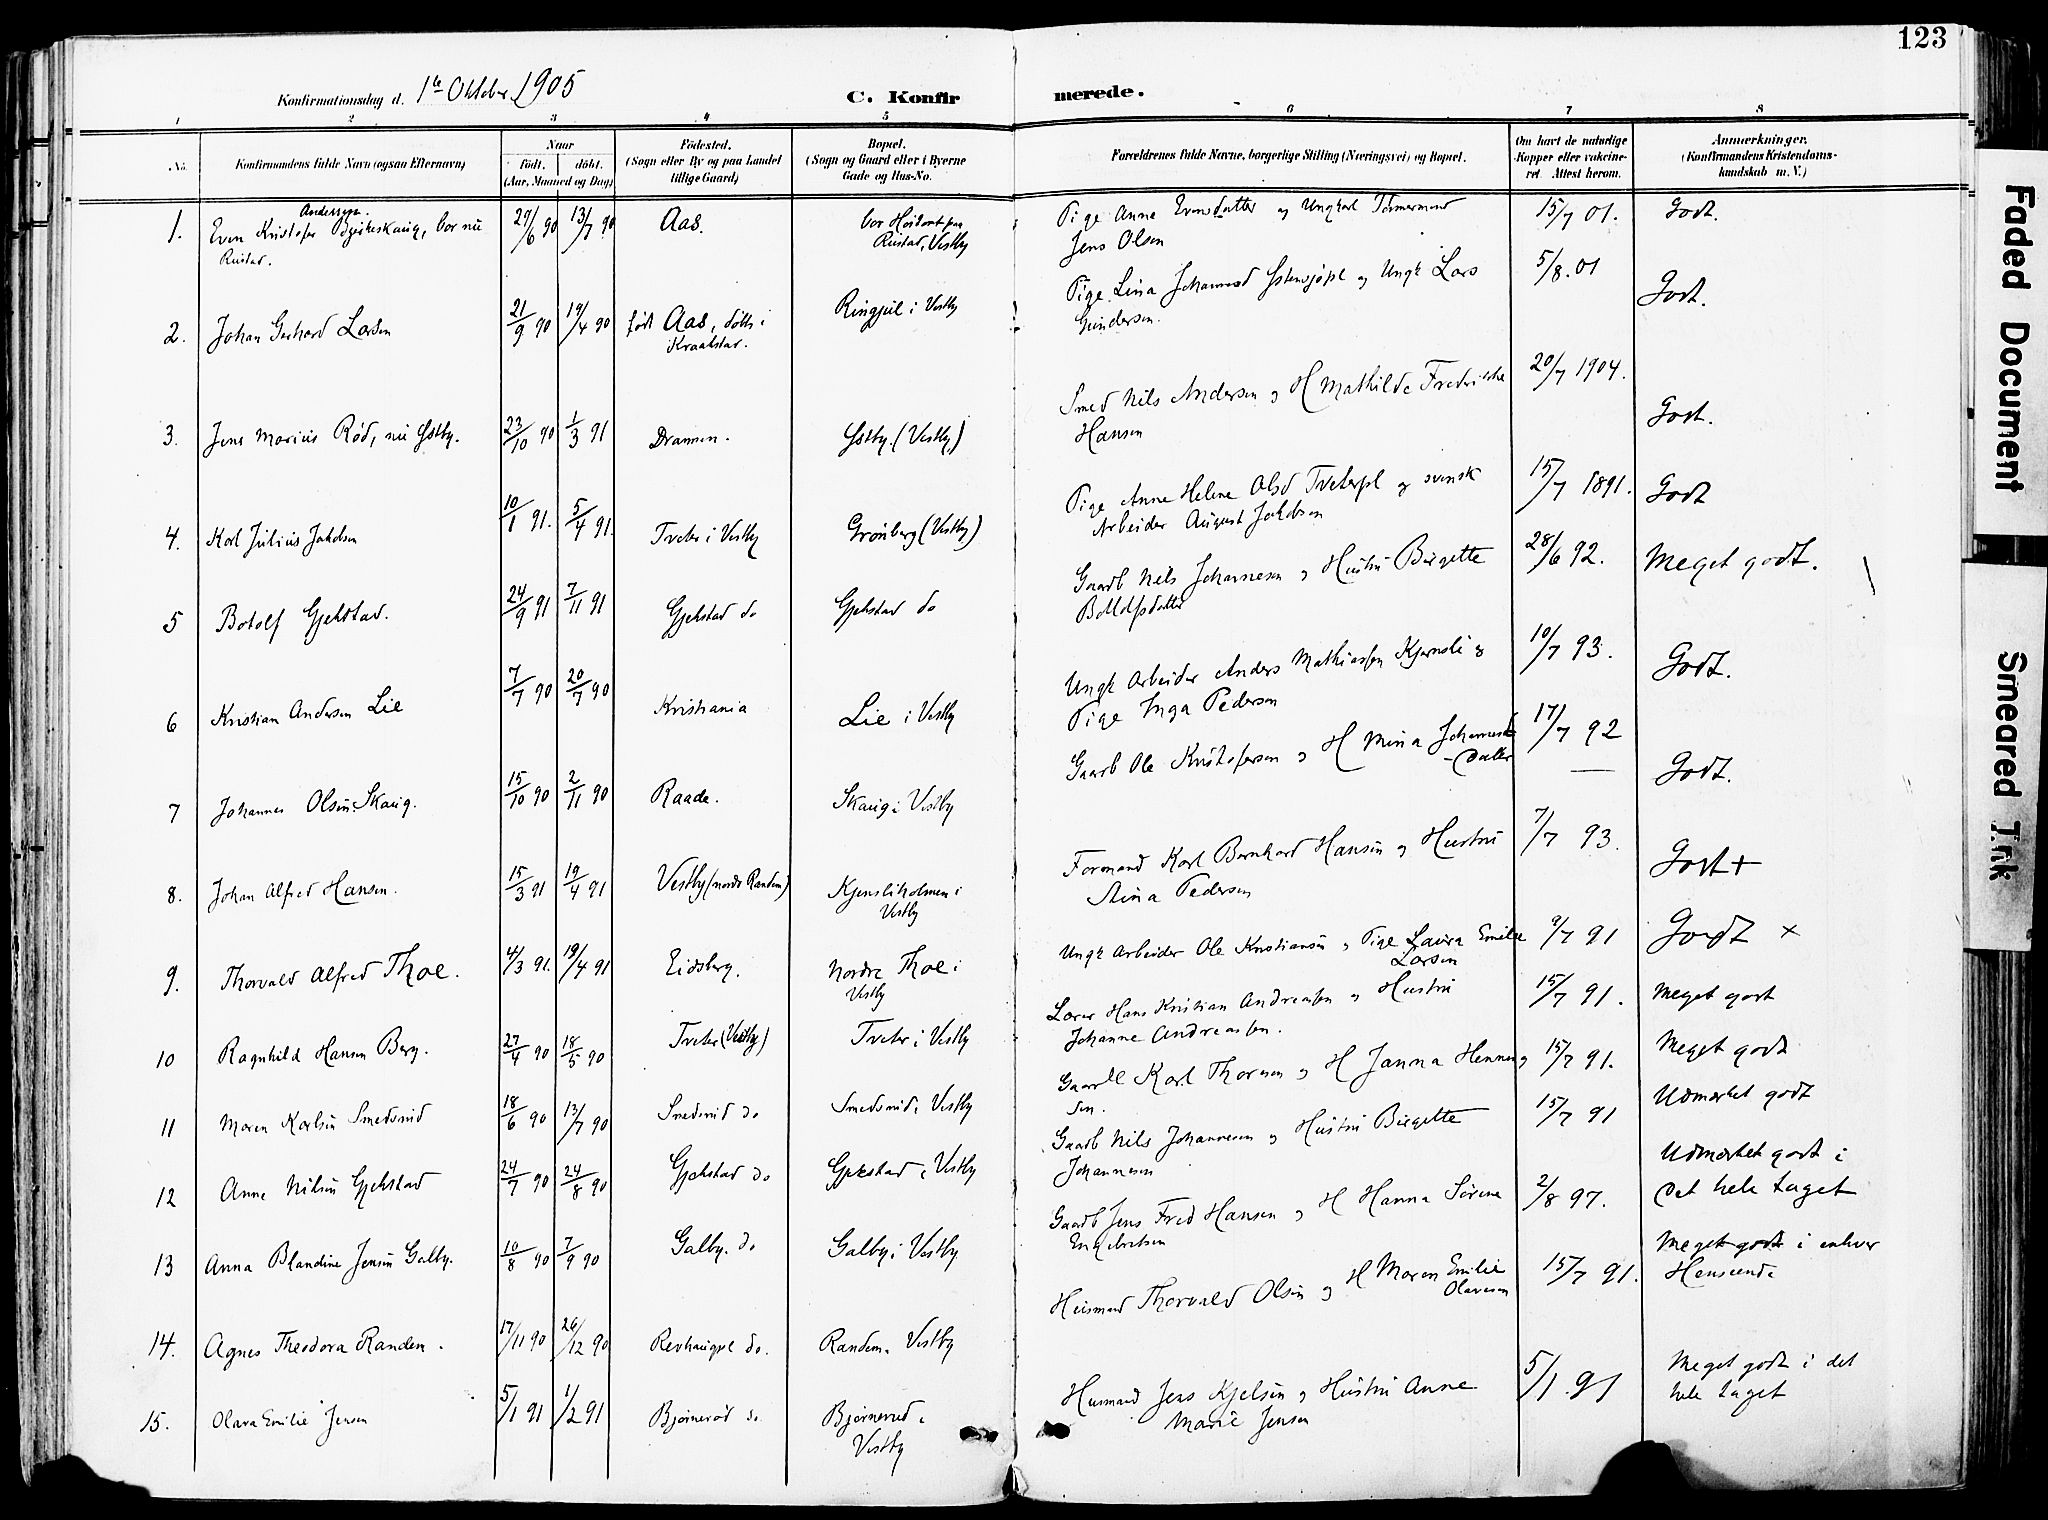 123
Konfirmationsdag d. 1te Oktober 1905
C. Konfirmerede.
1 2 3 4 5 6 7 8
No. Konfirmandens fulde Navn (ogsaa Efternavn)
Naar født. døbt. (Aar, Maaned og Dag)
Fødested. (Sogn eller By og paa Landet tillige Gaard)
Bopæl. (Sogn og Gaard eller i Byerne Gade og Hus-No.
Forældrenes fulde Navne, borgerlige Stilling (Næringsvei) og Bopæl.
Om havt de naturlige Kopper eller vakcineret. Attest herom.
Anmærkninger. (Konfirmandens Kristendomskundskab m. V.)
1. Even Kristofer Anderssen Bjerkeskaug, bor nu Rustad. 29/6 90 13/7 90 Aas. bor paa Rustad, Vestby Pige Anne Evensdatter og Ungkarl Tømmermand Jens Olsen 15/7 01. Godt.
2. Johan Gerhard Larsen 21/9 90 19/4 90 født Aas, døbt i Kraakstad. Ringjul i Vestby Pige Lina Johannesd og Ungk Lars Gundersen. 5/8. 01 Godt.
3. Jens Marius Rød, nu Østby. 23/10 90 1/3 91 Drammen. Østby. (Vestby) Smed Nils Andersen og H Mathilde Fredrikke Hansen 20/7 1904. Godt.
4. Karl Julius Jakobsen 10/1 91. 5/4 91. Tveter i Vestby Grønberg (Vestby) Pige Anne Helene Olsd Tveterpl og svensk Arbeider August Jakobsen 15/7 1891. Godt
5 Botolf Gjekstad. 24/9 91 7/11 91 Gjekstad do Gjekstad do Gaardb Nils Johannesen og Hustru Birgitte Botolfsdatter 28/6 92. Meget godt.
6 Kristian Andersen Lie 7/7 90 20/7 90 Kristiania Lie i Vestby Ungk Arbeider Anders Mathiassen Kjernsli og Pige Inga Pedersen 10/7 93. Godt.
7 Johannes Olsen Skaug. 15/10 90 2/11 90 Raade. Skaug i Vestby Gaardb Ole Kristofersen og H Mina Johannesdatter 17/7 92 Godt.
8. Johan Alfred Hansen. 15/3 91 19/4 91 Vestby (nordr Randem) Kjensliholmen i Vestby Formand Karl Bernhard Hansen og Hustru Stina Pedersen 7/7 93. Godt +
9. Thorvald Alfred Thoe. 4/3 91. 19/4 91 Eidsberg. Nordre Thoe i Vestby Ungk Arbeider Ole Kristiansen og Pige Laura Emilie Larsen 9/7 91 Godt x
10 Ragnhild Hansen Berg. 27/4 90 18/5 90 Tveter (Vestby) Tveter i Vestby Lærer Hans Kristian Andreassen og Hustru Johanne Andreassen. 15/7 91. Meget godt
11 Maren Karlsen Smedsrud 18/6 90 13/7 90 Smedsrud do Smedsrud i Vestby Gaardb Karl Thoresen og H Janna Henningsen. 15/7 91. Meget godt
12 Anne Nilsen Gjekstad 24/7 90 24/8 90 Gjekstad do Gjekstad i Vestby Gaardb Nils Johannesen og Hustru Birgitte Johannesen 15/7 91 Udmærket godt
13 Anna Blandine Jensen Galby. 10/8 90 7/9 90 Galby. do Galby i Vestby Gaardb Jens Fred Hansen og H Hanna Sørine Engebretsen 2/8 97. Udmærket godt i det hele taget
14. Agnes Theodora Randem. 17/11 90 26/12 90 Revhaugpl do. Randem. Vestby Husmand Thorvald Olsen og H Maren Emilie Olavesen 15/7 91. Meget godt i enhver Henseende
15. Olava Emilie Jensen 5/1 91 1/2 91 Bjørnerød do Bjørnerud i Vestby Husmand Jens Kjelsen og Hustru Anne Marie Jensen 5/1. 91 Meget godt i det hele taget
Faded Document
Smeared Trik